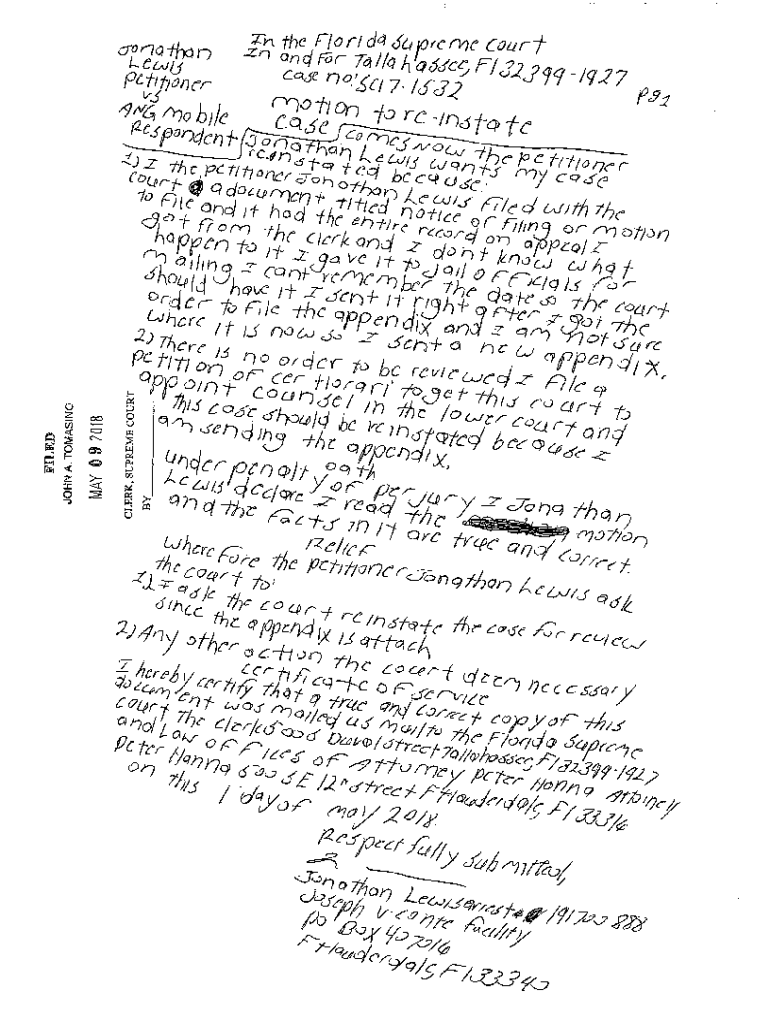 In the Florida Supreme Court
In and For Tallahassee, Fl 32399-1927
case no: SC17-1532
pg 1
Jonathan
Lewis
petitioner
vs
ANG mobile
Respondent
motion to re-instate
case
comes now the petitioner
Jonathan Lewis wants my case
reinstated because:
1) I the petitioner Jonathan Lewis filed with the
court a document titled notice of filing or motion
to file and it had the entire record on appeal I
got from the clerk and I dont know what
happen to it I gave it to jail officials for
mailing I cant remember the date so the court
should have it I sent it right after I got the
order to file the appendix and I am not sure
where it is now so I sent a new appendix.
2) There is no order to be reviewed I file a
petition of certiorari to get this court to
appoint counsel in the lower court and
this case should be reinstated because I
am sending the appendix.
oath
under penalty of perjury I Jonathan
Lewis declare I read the motion
and the facts in it are true and correct.
Relief
Wherefore the petitioner Jonathan Lewis ask
the court to:
1) I ask the court reinstate the case for review
since the appendix is attach
2) Any other action the court deem neccessary
certificate of service
I hereby certify that a true and correct copy of this
document was mailed us mail to the Florida Supreme
court the clerk 500 S Duval Street Tallahassee, Fl 32399-1927
and Law offices of Attorney Peter Hanna Attorney
Peter Hanna 500 SE 12th street Ft lauderdale, Fl 33316
on this 1 day of may 2018.
Respectfully submitted,
Jonathan Lewis arrest # 191700888
Joseph v. conte facility
po Box 407016
Ft lauderdale, Fl 33340
FILED
JOHN A. TOMASINO
MAY 09 2018
CLERK, SUPREME COURT
BY